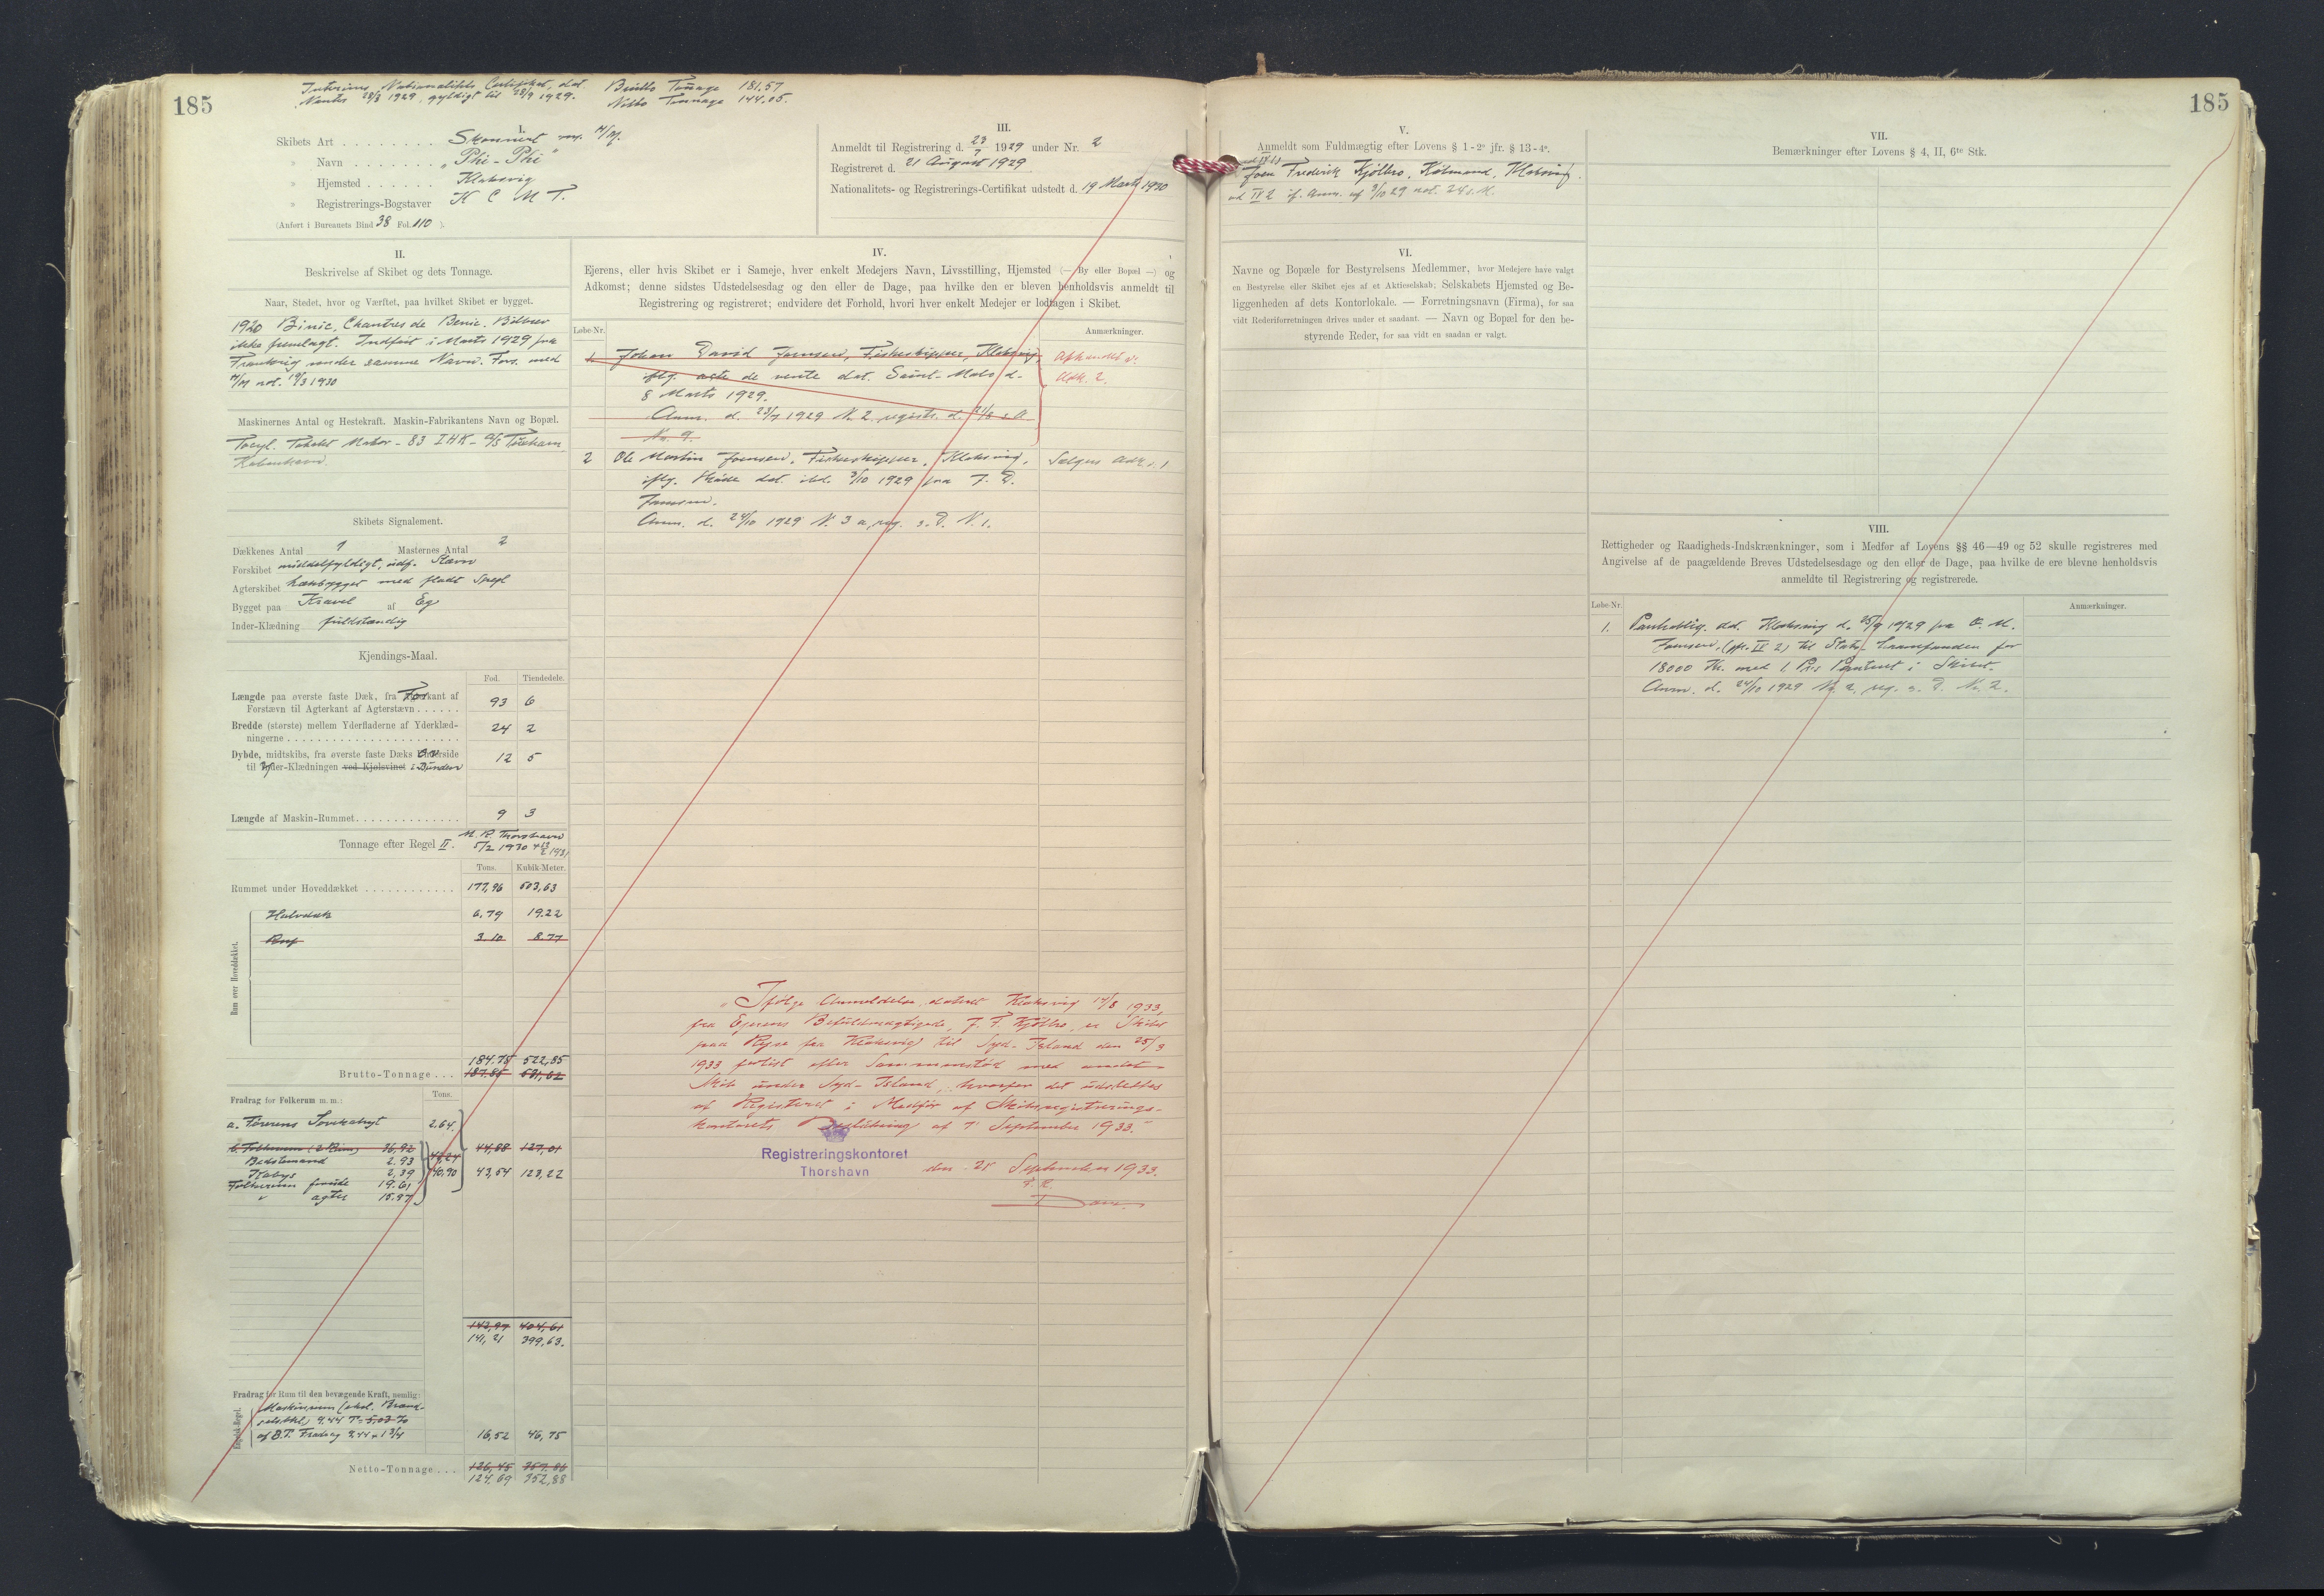 185
Interims Nationalitets Certifikat, dat.
Nantes 28/3 1929, gyldigt til 28/9 1929.
Brutto Tonnage 181,57
Netto Tonnage 144,05.
I.
Skibets Art Skonnert m. M/M.
» Navn „Phi-Phi"
» Hjemsted Klaksvig
» Registrerings-Bogstaver N C M T.
(Anført i Bureauets Bind 38 Fol. 110 ).
III.
Anmeldt til Registrering d. 23/7 1929 under Nr. 2
Registreret d. 21 August 1929
Nationalitets- og Registrerings-Certifikat udstedt d. 19 Marts 1930
II.
Beskrivelse af Skibet og dets Tonnage.
Naar, Stedet, hvor og Værftet, paa hvilket Skibet er bygget.
1920 Binic, Chantres de Benic. Bilbrev
ikke fremlagt. Indført i Marts 1929 fra
Frankrig under samme Navn. Fors. med
M/M not. 19/3 1930
Maskinernes Antal og Hestekraft. Maskin-Fabrikantens Navn og Bopæl.
Tocyl. Takts Motor - 83 IHK - A/S
København.
Skibets Signalement.
Dækkenes Antal 1 Masternes Antal 2
Forskibet middelfyldigt, udf. Stævn
Agterskibet hækbygget med fladt Spejl
Bygget paa Kravel af Eg
Inder-Klædning fuldstændig
Kjendings-Maal.
Fod. Tiendedele.
Længde paa øverste faste Dæk, fra Forkant af
Forstævn til Agterkant af Agterstævn 93 6
Bredde (største) mellem Yderfladerne af Yderklæd-
ningerne 24 2
Dybde, midtskibs, fra øverste faste Dæks Overside
til Inder-Klædningen ved Kjølsvinet i Bunden 12 5
Længde af Maskin-Rummet 9 3
Tonnage efter Regel II. M. R. Thorshavn
5/2 1930
Tons. Kubik-Meter.
Rummet under Hoveddækket 177,96 503,63
Rum over Hoveddækket.
Halvdæk 6,79 19.22
Ruf 3.10 8.77
184.75 522,85
Brutto-Tonnage 187.85 531,62
Fradrag for Folkerum m. m.: Tons.
a. Førerens Soverahyt 2,64.
b. Folkerum (2 Rum) 36,92 44,88 127,01
Bedstemand 2.93 42,24
Kabys 2,39 40,90 43,54 123,22
Folkerum forude 19.61
" agter 15.97
142,97 404,61
141,21 399,63.
Fradrag for Rum til den bevægende Kraft, nemlig:
Engelsk-Regel.
Maskinrum (ekcl. Brænd-
selsbeh.) 9.44 T = 5,03 %
af B.T. Fradrag 9.44 x 1 3/4 16,52 46,75
Netto-Tonnage 126,45 357.86
124.69 352,88
IV.
Ejerens, eller hvis Skibet er i Sameje, hver enkelt Medejers Navn, Livsstilling, Hjemsted (— By eller Bopæl —) og
Adkomst; denne sidstes Udstedelsesdag og den eller de Dage, paa hvilke den er bleven henholdsvis anmeldt til
Registrering og registreret; endvidere det Forhold, hvori hver enkelt Medejer er lodtagen i Skibet.
Løbe-Nr. Anmærkninger.
1. Johan David Joensen, Fiskeskipper, Klaksvig, Afhændet v.
iflg. acte de vente dat. Saint-Malo d. Adk. 2.
8 Marts 1929.
Anm. d. 23/7 1929 N. 2 registr. d. 21/8 s. A.
No. 9.
2 Ole Martin Joensen, Fiskeskipper, Klaksvig, Sælger Adk. 1
iflg. Skøde dat. ibd. 3/10 1929 fra J. D.
Joensen.
Anm. d. 24/10 1929 N. 3 a, reg. s. D. N. 1.
„Ifølge Anmeldelse, dateret Klaksvig 14/8 1933,
fra Ejerens Befuldmægtigede, J. F. Kjølbro, er Skibet
paa Rejse fra Klaksvig til Syd-Island den 25/3
1933 forlist efter Sammenstød med andet
Skib under Syd-Island, hvorfor det udslettes
af Registeret i Medfør af Skibsregistrerings-
kontorets Beslutning af 7 September 1933."
Registreringskontoret
Thorshavn
den 21 September 1933.
185
V.
Anmeldt som Fuldmægtig efter Lovens § 1 - 2° jfr. § 13 - 4°.
Joen Frederik Kjølbro, Købmand, Klaksvig.
ad IV 2 if. Anm. af 3/10 29 not. 24 s. M.
VI.
Navne og Bopæle for Bestyrelsens Medlemmer, hvor Medejere have valgt
en Bestyrelse eller Skibet ejes af et Aktieselskab; Selskabets Hjemsted og Be-
liggenheden af dets Kontorlokale. — Forretningsnavn (Firma), for saa
vidt Rederiforretningen drives under et saadant. — Navn og Bopæl for den be-
styrende Reder, for saa vidt en saadan er valgt.
VII.
Bemærkninger efter Lovens § 4, II, 6te Stk.
VIII.
Rettigheder og Raadigheds-Indskrænkninger, som i Medfør af Lovens §§ 46—49 og 52 skulle registreres med
Angivelse af de paagældende Breves Udstedelsesdage og den eller de Dage, paa hvilke de ere blevne henholdsvis
anmeldte til Registrering og registrerede.
Løbe-Nr. Anmærkninger.
1. Panteoblig. dd. Klaksvig d. 25/9 1929 fra O. M.
Joensen, (jfr. IV 2) til Stats Laanefonden for
18000 Kr. med 1. Pris Panteret i Skibet.
Anm. d. 24/10 1929 No. 2, reg. s. D. No. 2.